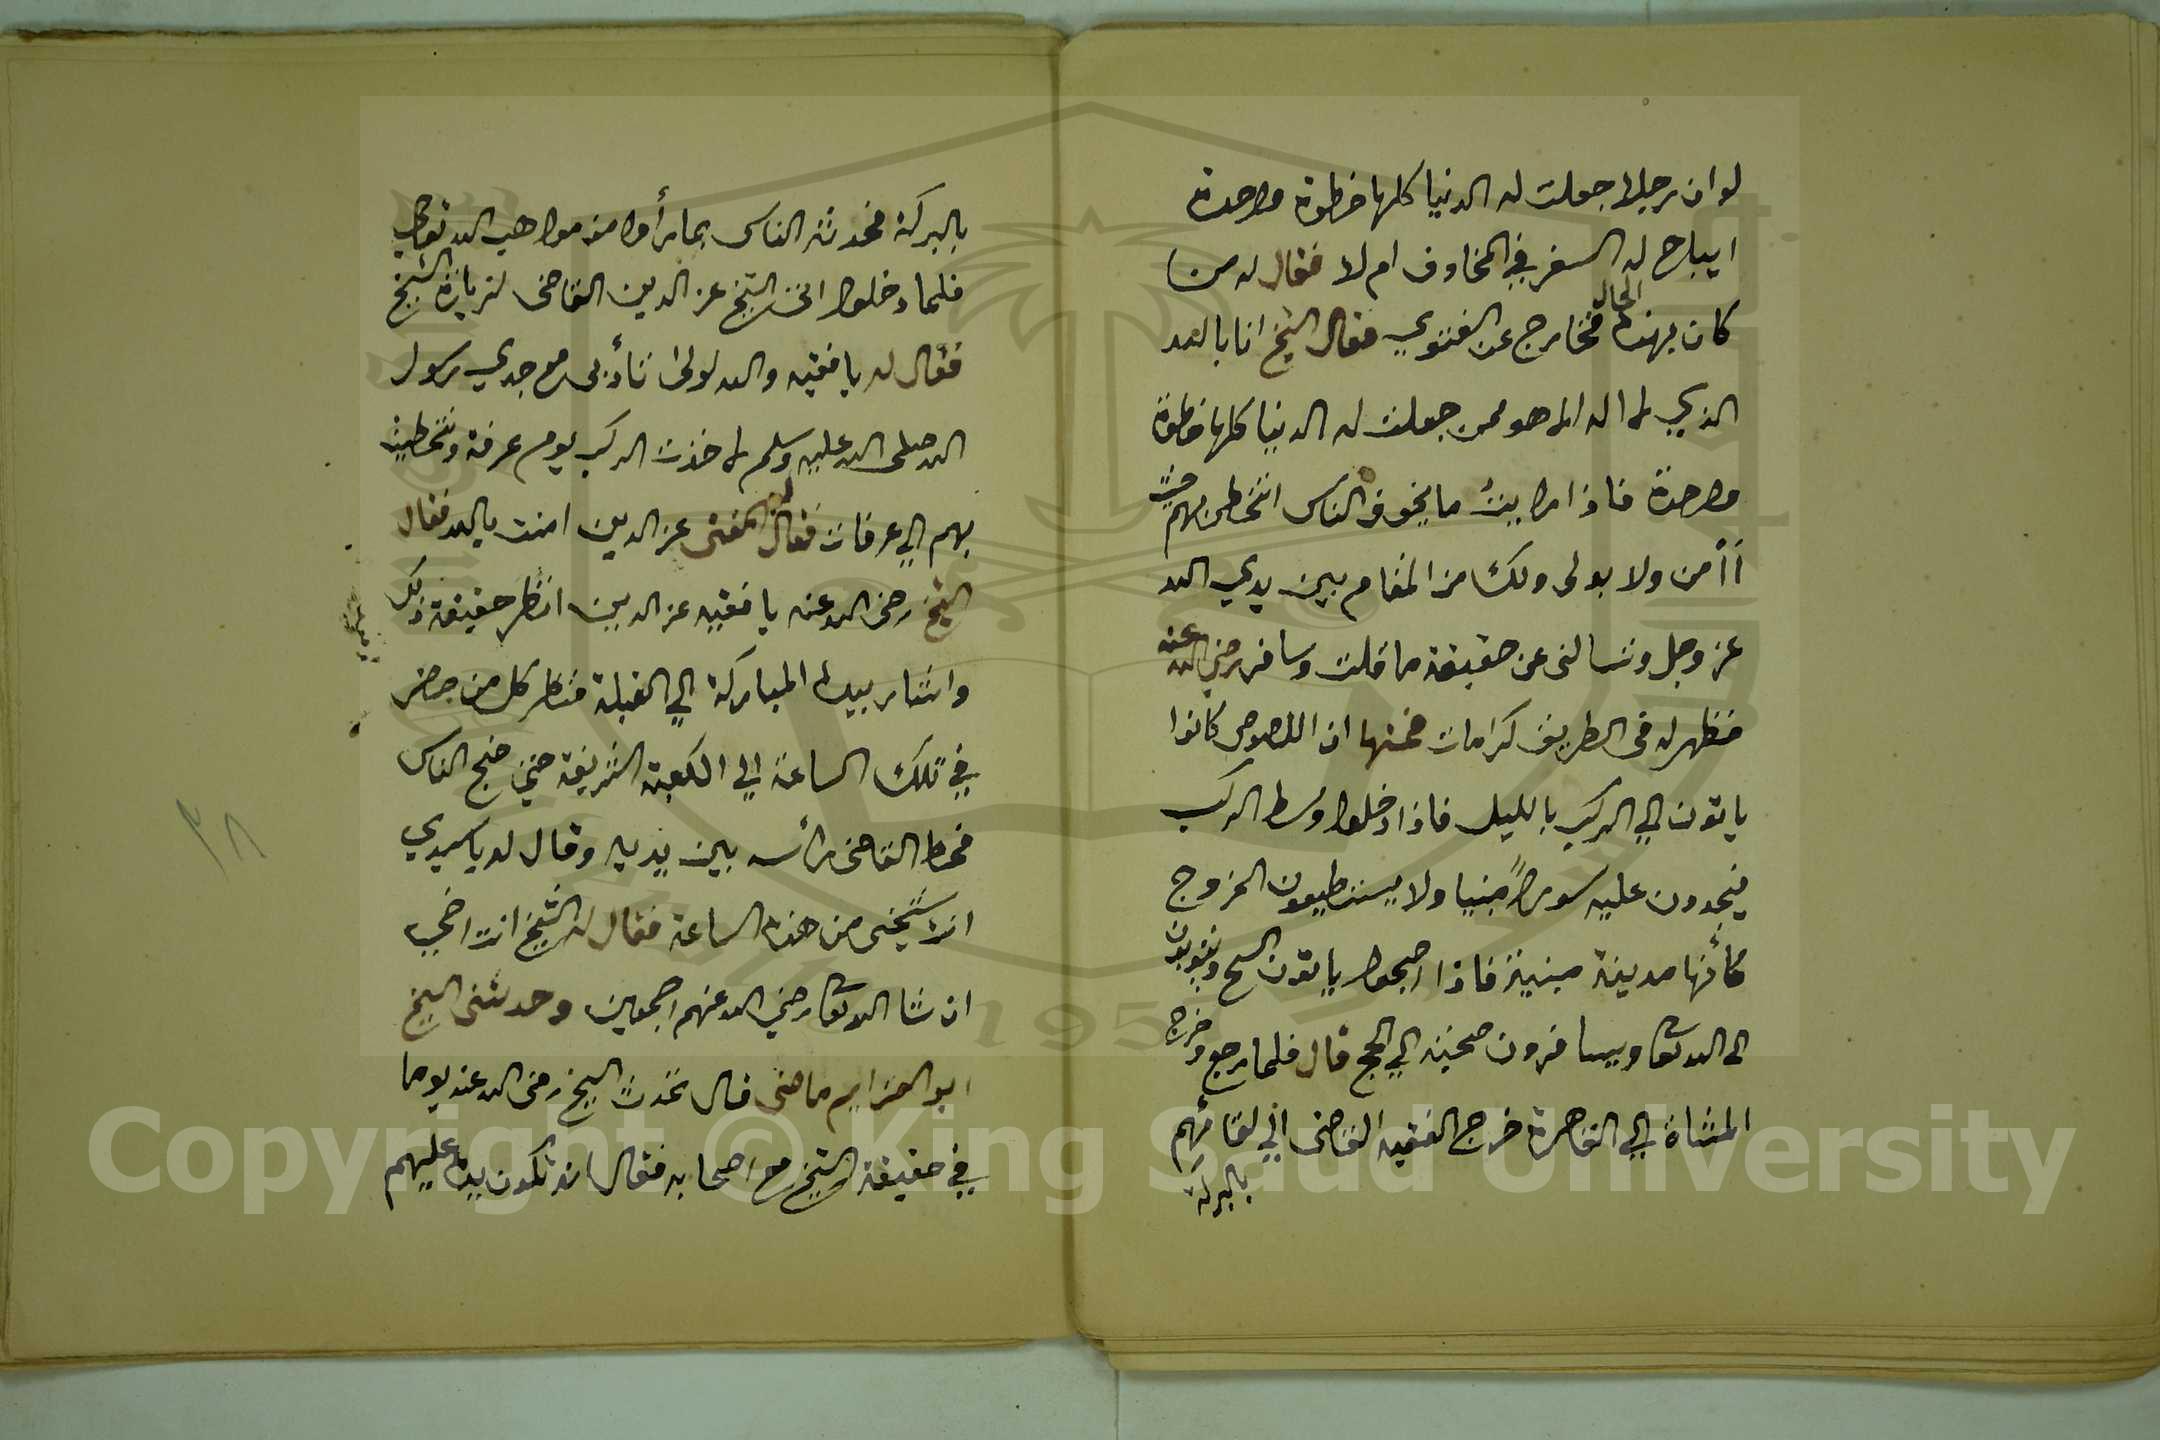 لو ان رجلا جعلت له الدنيا كلها خطوة واحدة
ايباح له السفر في المخاوف ام لا فقال له من
كان بهذه الحال فخارج عن الفتوي فقال الشيخ انا بالله
الذي لا اله الا هو ممن جعلت له الدنيا كلها خطوة
واحدة فاذا رايت ما يخوف الناس اتخطي بهم حيث
أأمن ولا بد لي ولك من المقام بين يدي الله
عز وجل وتسالني عن حقيقة ما قلت وسافر رضي الله عنه
فظهر له في الطريق كرامات فمنها ان اللصوص كانوا
ياتون الي الركب بالليل فاذا دخلوا وسط الركب
فيجدون عليه سوراً مبنيا ولا يستطيعون الخروج
كأنها مدينة مبنية فاذا اصبحوا ياتون الشيخ ويتوبون
الى الله تعالى ويسافرون صحبته الي الحج قال فلما رجع وخرج
المشاة الي القاهرة خرج الفقيه القاضى الي لقائهم
بالبركة
بالبركة فحدثه الناس بما رأوا من مواهب الله تعالى
فلما دخلوا اتى الشيخ عز الدين القاضى لزيارة الشيخ
فقال له يا فقيه والله لولا تأدبى مع جدي رسول
الله صلى الله عليه وسلم لاخذت الركب يوم عرفة وتخطيت
بهم الي عرفات فقال له المفتى عز الدين امنت بالله فقال
الشيخ رضى الله عنه يا فقيه عز الدين انظر حقيقة ذلك
واشار بيده المباركة الي القبلة فنظر كل من حضر
في تلك الساعة الي الكعبة الشريفة حتي ضج الناس
فحط القاضى رأسه بين يديه وقال له يا سيدي
انت شيخى من هذه الساعة فقال له الشيخ انت اخي
ان شا الله تعالى رضي الله عنهم اجمعين وحدثنى الشيخ
ابو العزايم ماضى قال تحدث الشيخ رضى الله عنه يوما
في حقيقة الشيخ مع اصحابه فقال ان تكون يده عليهم
٣٨
Copyright © King Saud University
1957